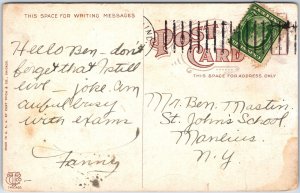 THIS SPACE FOR WRITING MESSAGES
POST
CARD
THIS SPACE FOR ADDRESS ONLY
Hello Ben - don't
forget that I still
live - joke. Am
awful busy
with exams
Fannie
Mr. Ben. Mastin.
St. John's School.
Manlius.
N.Y